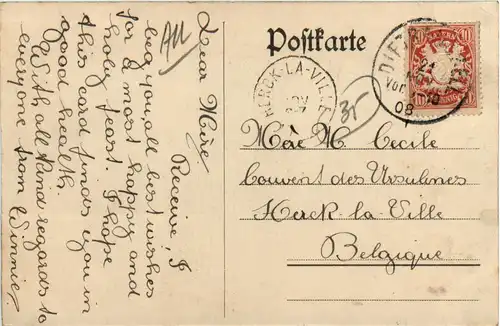 Dear Mère
Receive, I
beg you, all best wishes
for a most happy and
holy feast. I hope
this card finds you in
good health.
With all kind regards to
everyone from Winnie
All
Postkarte
HERCK-LA-VILLE
NOV
BAYERN
10
10
21
NOV
08
35
Mère M. Cecile
Couvent des Ursulines
Herck-la-Ville
Belgique